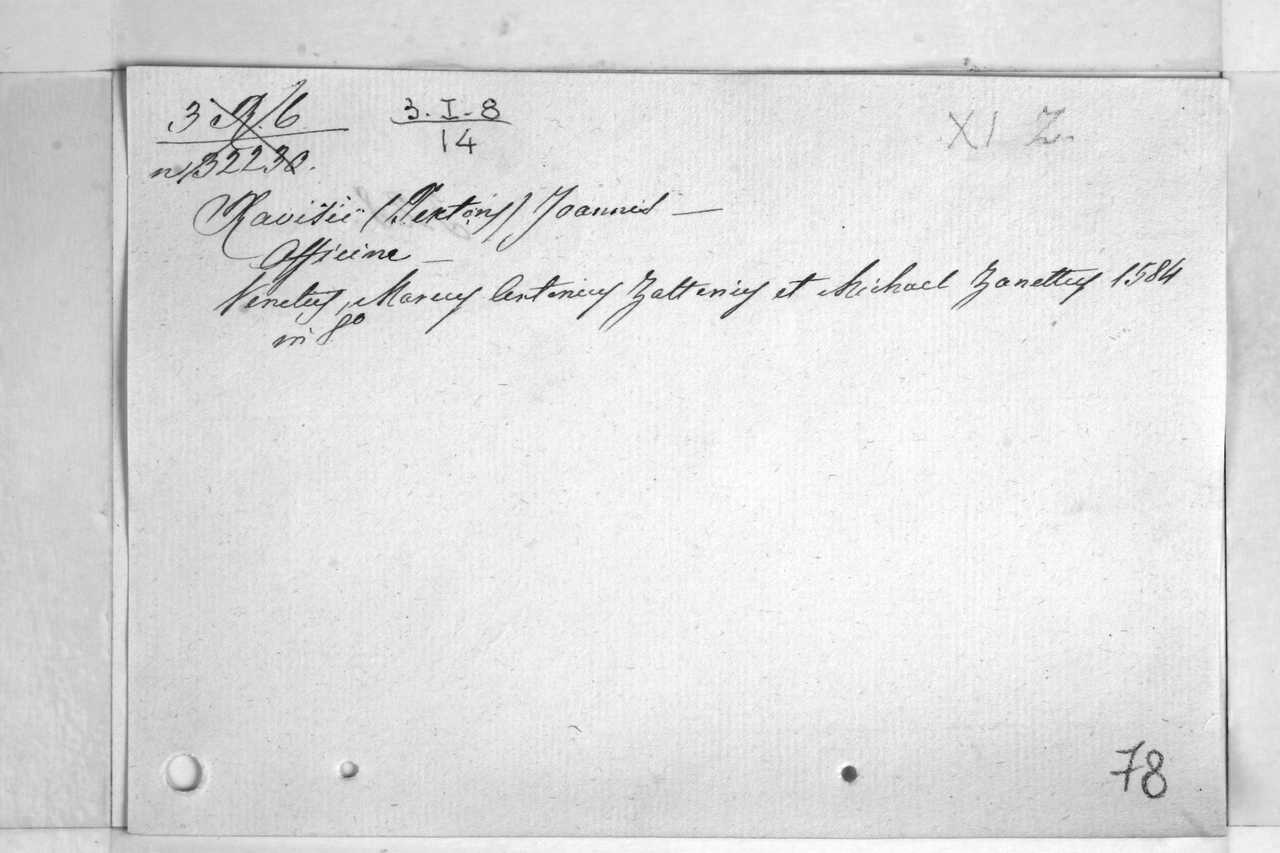 3 9 6 3. I - 8 XI Z
n 32230. 14
Ravisii (Textoris) Joannis —
Officine —
Venetus, Marcus Antonius Zalterius et Michael Zanettus 1584
in 8o
78